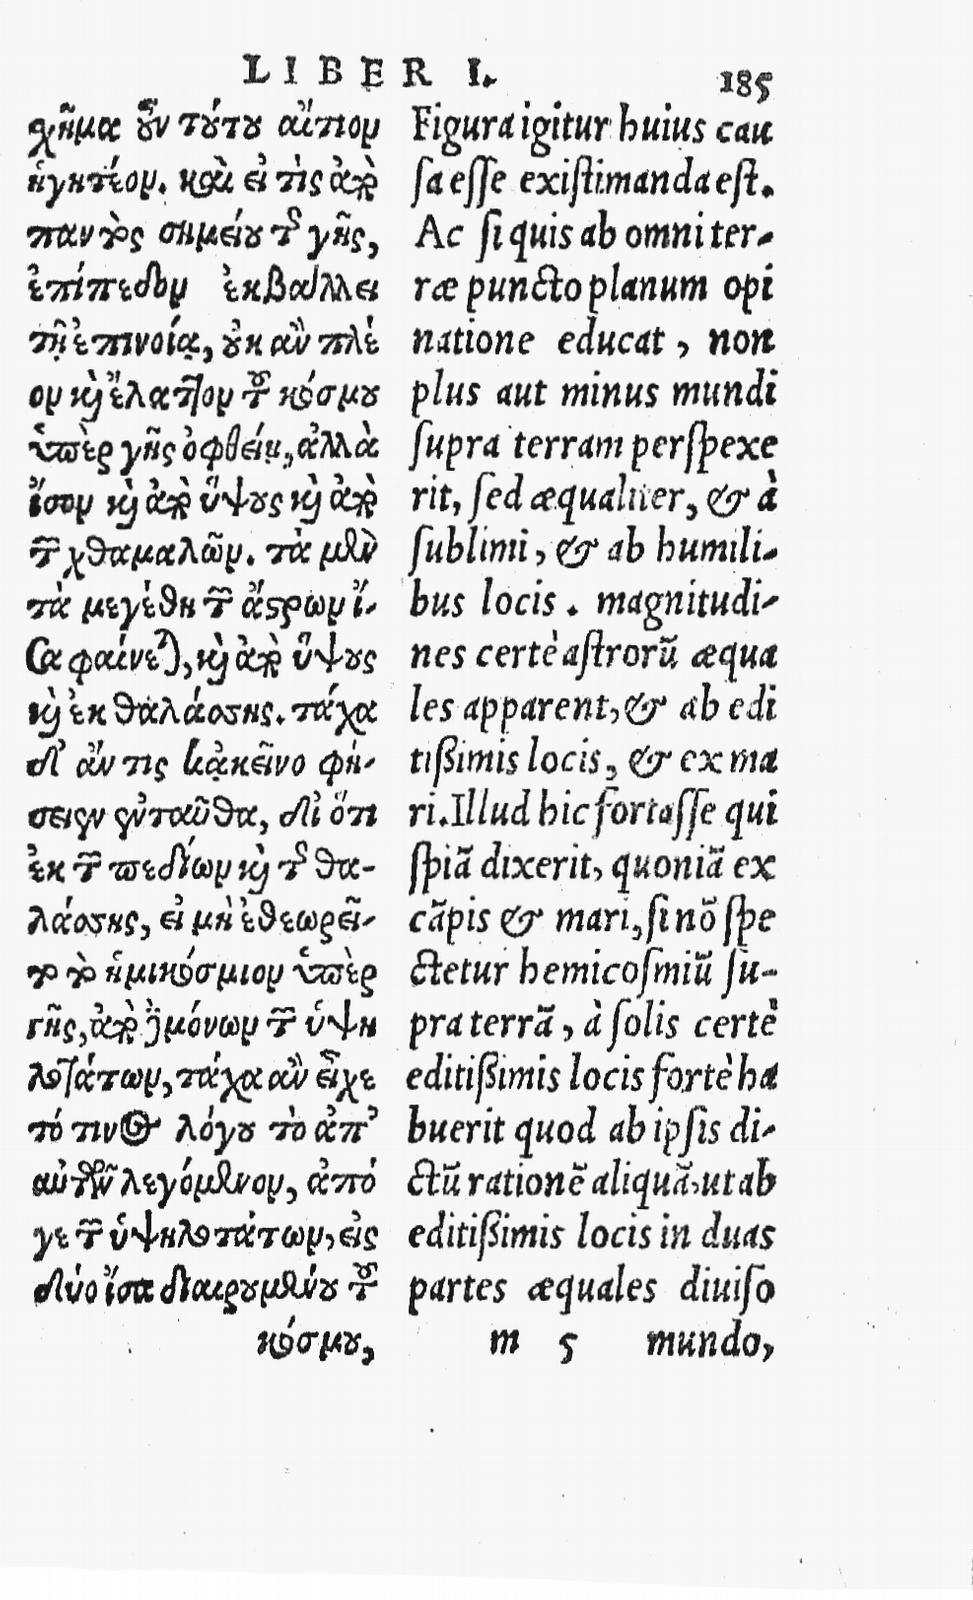 LIBER I. 185
χῆμα οὖν τούτου αἴτιον
ἡγητέον. καὶ εἰ τὶς ἀπὸ
παντὸς σημείου τῆς γῆς,
ἐπίπεδον ἐκβάλλει
τῇ ἐπινοίᾳ, οὐκ ἂν πλέ
ον καὶ ἔλαττον τοῦ κόσμου
ὑπὲρ γῆς ὀφθείη, ἀλλὰ
ἴσον καὶ ἀπὸ ὕψους καὶ ἀπὸ
τῶν χθαμαλῶν. τὰ μὲν
τὰ μεγέθη τῶν ἄστρων ἴ-
σα φαίνεται, καὶ ἀπὸ ὕψους
καὶ ἐκ θαλάσσης. τάχα
δ' ἄν τις κᾀκεῖνο φή-
σειεν ἐνταῦθα, διότι
ἐκ τῶν πεδίων καὶ τῆς θα-
λάσσης, εἰ μὴ ἐθεωρεῖ-
το τὸ ἡμικόσμιον ὑπὲρ
γῆς, ἀπὸ γε μόνων τῶν ὑψη
λοτάτων, τάχα ἂν εἶχε
τό τινος λόγου τὸ ἀπ'
αὐτῶν λεγόμενον, ἀπό
γε τῶν ὑψηλοτάτων, εἰς
δύο ἴσα διαιρουμένου τοῦ
κόσμου,
Figura igitur huius cau
sa esse existimanda est.
Ac si quis ab omni ter-
ræ puncto planum opi
natione educat, non
plus aut minus mundi
supra terram perspexe
rit, sed æqualiter, & à
sublimi, & ab humili-
bus locis. magnitudi-
nes certè astrorũ æqua
les apparent, & ab edi
tißimis locis, & ex ma
ri. Illud hic fortasse qui
spiã dixerit, quoniã ex
cãpis & mari, si nõ spe
ctetur hemicosmiũ su-
pra terrã, à solis certè
editißimis locis fortè ha
buerit quod ab ipsis di-
ctũ rationẽ aliquã, ut ab
editißimis locis in duas
partes æquales diuiso
m 5 mundo,